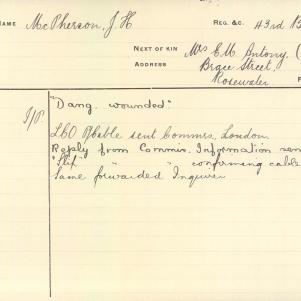 NAME McPherson, J. H. REG. &C. 43rd B
NEXT OF KIN Mrs E M Antony, (
ADDRESS Brace Street,
Rosewater.
"Dang. wounded."
LCO Cable sent Commrs. London
Reply from Commis. Information sen
"Slip" " " confirming cable
Same forwarded Inquirer